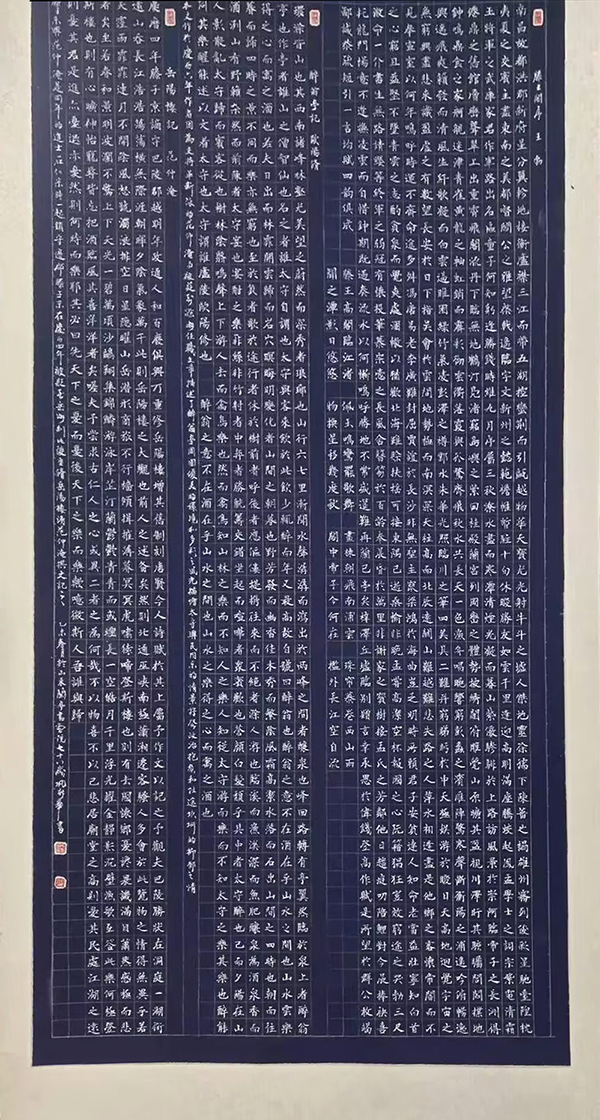 滕王閣序 王勃
南昌故郡洪都新府星分翼軫地接衡廬襟三江而帶五湖控蠻荊而引甌越物華天寶龍光射牛斗之墟人傑地靈徐孺下陳蕃之榻雄州霧列俊彩星馳臺隍枕
夷夏之交賓主盡東南之美都督閻公之雅望棨戟遙臨宇文新州之懿範襜帷暫駐十旬休暇勝友如雲千里逢迎高朋滿座騰蛟起鳳孟學士之詞宗紫電清霜
王將軍之武庫家君作宰路出名區童子何知躬逢勝餞時維九月序屬三秋潦水盡而寒潭清煙光凝而暮山紫儼驂騑於上路訪風景於崇阿臨帝子之長洲得
之舊館層巒聳翠上出重霄飛閣流丹下臨無地鶴汀鳧渚窮島嶼之縈迴桂殿蘭宮列岡巒之體勢披繡闥俯雕甍山原曠其盈視川澤紆其駭矚閭閻撲地
鐘鳴鼎食之家舸艦迷津青雀黃龍之軸虹銷雨霽彩徹雲衢落霞與孤鶩齊飛秋水共長天一色漁舟唱晚響窮彭蠡之濱雁陣驚寒聲斷衡陽之浦遙吟俯暢逸
興遄飛爽籟發而清風生纖歌凝而白雲遏睢園綠竹氣凌彭澤之樽鄴水朱華光照臨川之筆四美具二難并窮睇眄於中天極娛遊於暇日天高地迥覺宇宙之
無窮興盡悲來識盈虛之有數望長安於日下指吳會於雲間地勢極而南溟深天柱高而北辰遠關山難越誰悲失路之人萍水相逢盡是他鄉之客懷帝閽而不
見奉宣室以何年嗚呼時運不齊命途多舛馮唐易老李廣難封屈賈誼於長沙非無聖主竄梁鴻於海曲豈乏明時所賴君子安貧達人知命老當益壯寧知白首
之心窮且益堅不墜青雲之志酌貪泉而覺爽處涸轍以猶歡北海雖賒扶搖可接東隅已逝桑榆非晚孟嘗高潔空懷報國之心阮籍猖狂豈效窮途之哭勃三尺
微命一介書生無路請纓等終軍之弱冠有懷投筆慕宗愨之長風舍簪笏於百齡奉晨昏於萬里非謝家之寶樹接孟氏之芳鄰他日趨庭叨陪鯉對今晨捧袂喜
托龍門楊意不逢撫凌雲而自惜鍾期既遇奏流水以何慚嗚呼勝地不常盛筵難再蘭亭已矣梓澤丘墟臨別贈言幸承恩於偉餞登高作賦是所望於群公敢竭
鄙誠恭疏短引一言均賦四韻俱成 滕王高閣臨江渚 佩玉鳴鸞罷歌舞 畫棟朝飛南浦雲 珠簾暮卷西山雨
閒雲潭影日悠悠 物換星移幾度秋 閣中帝子今何在 檻外長江空自流
醉翁亭記 歐陽修
環滁皆山也其西南諸峰林壑尤美望之蔚然而深秀者琅琊也山行六七里漸聞水聲潺潺而瀉出於兩峰之間者釀泉也峰回路轉有亭翼然臨於泉上者醉翁
亭也作亭者誰山之僧智仙也名之者誰太守自謂也太守與客來飲於此飲少輒醉而年又最高故自號曰醉翁也醉翁之意不在酒在乎山水之間也山水之樂
得之心而寓之酒也若夫日出而林霏開雲歸而岩穴暝晦明變化者山間之朝暮也野芳發而幽香佳木秀而繁陰風霜高潔水落而石出者山間之四時也朝而往
暮而歸四時之景不同而樂亦無窮也至於負者歌於途行者休於樹前者呼後者應傴僂提攜往來而不絕者滁人遊也臨溪而漁溪深而魚肥釀泉為酒泉香而
酒洌山肴野蔌雜然而前陳者太守宴也宴酣之樂非絲非竹射者中弈者勝觥籌交錯坐起而喧嘩者眾賓歡也蒼顏白髮頹乎其中者太守醉也已而夕陽在山
人影散亂太守歸而賓客從也樹林陰翳鳴聲上下遊人去而禽鳥樂也然而禽鳥知山林之樂而不知人之樂人知從太守遊而樂而不知太守之樂其樂也醉能
同其樂醒能述以文者太守也太守謂誰廬陵歐陽修也 醉翁之意不在酒在乎山水之間也山水之樂得之心而寓之酒也
岳陽樓記 范仲淹
慶曆四年春滕子京謫守巴陵郡越明年政通人和百廢俱興乃重修岳陽樓增其舊制刻唐賢今人詩賦於其上屬予作文以記之予觀夫巴陵勝狀在洞庭一湖銜
遠山吞長江浩浩湯湯橫無際涯朝暉夕陰氣象萬千此則岳陽樓之大觀也前人之述備矣然則北通巫峽南極瀟湘遷客騷人多會於此覽物之情得無異乎若
夫霪雨霏霏連月不開陰風怒號濁浪排空日星隱曜山岳潛形商旅不行檣傾楫摧薄暮冥冥虎嘯猿啼登斯樓也則有去國懷鄉憂讒畏譏滿目蕭然感極而悲
者矣至若春和景明波瀾不驚上下天光一碧萬頃沙鷗翔集錦鱗游泳岸芷汀蘭鬱鬱青青而或長煙一空皓月千里浮光躍金靜影沉璧漁歌互答此樂何極登
斯樓也則有心曠神怡寵辱皆忘把酒臨風其喜洋洋者矣嗟夫予嘗求古仁人之心或異二者之為何哉不以物喜不以己悲居廟堂之高則憂其民處江湖之遠
則憂其君是進亦憂退亦憂然則何時而樂耶其必曰先天下之憂而憂後天下之樂而樂噫微斯人吾誰與歸